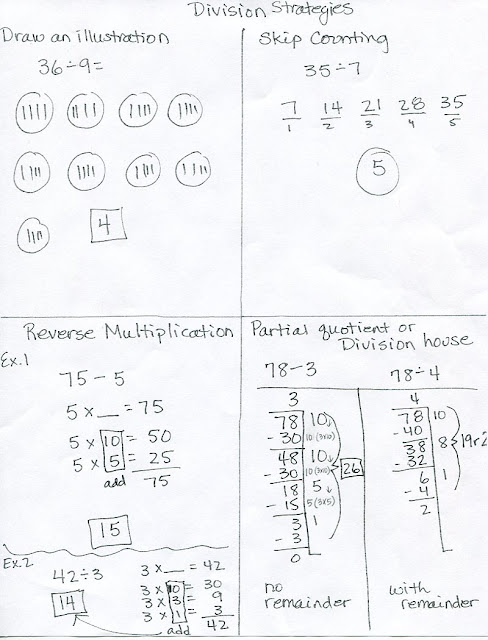 Division Strategies
Draw an illustration
36÷9=
4
Skip Counting
35÷7
7 14 21 28 35
1 2 3 4 5
5
Reverse Multiplication
Ex.1
75-5
5 x __ = 75
5 x 10 = 50
5 x 5 = 25
add 75
15
Ex.2
42÷3
14
3 x __ = 42
3 x 10 = 30
3 x 3 = 9
3 x 1 = 3
add 42
Partial quotient or
Division house
78-3
3
78 10
- 30 10 (3x10)
48 10
- 30 10 (3x10)
18 5
- 15 5 (3x5)
3 1
- 3
0
26
no
remainder
78÷4
4
78 10
- 40
38 8
- 32
6 1
- 4
2
19r2
with
remainder